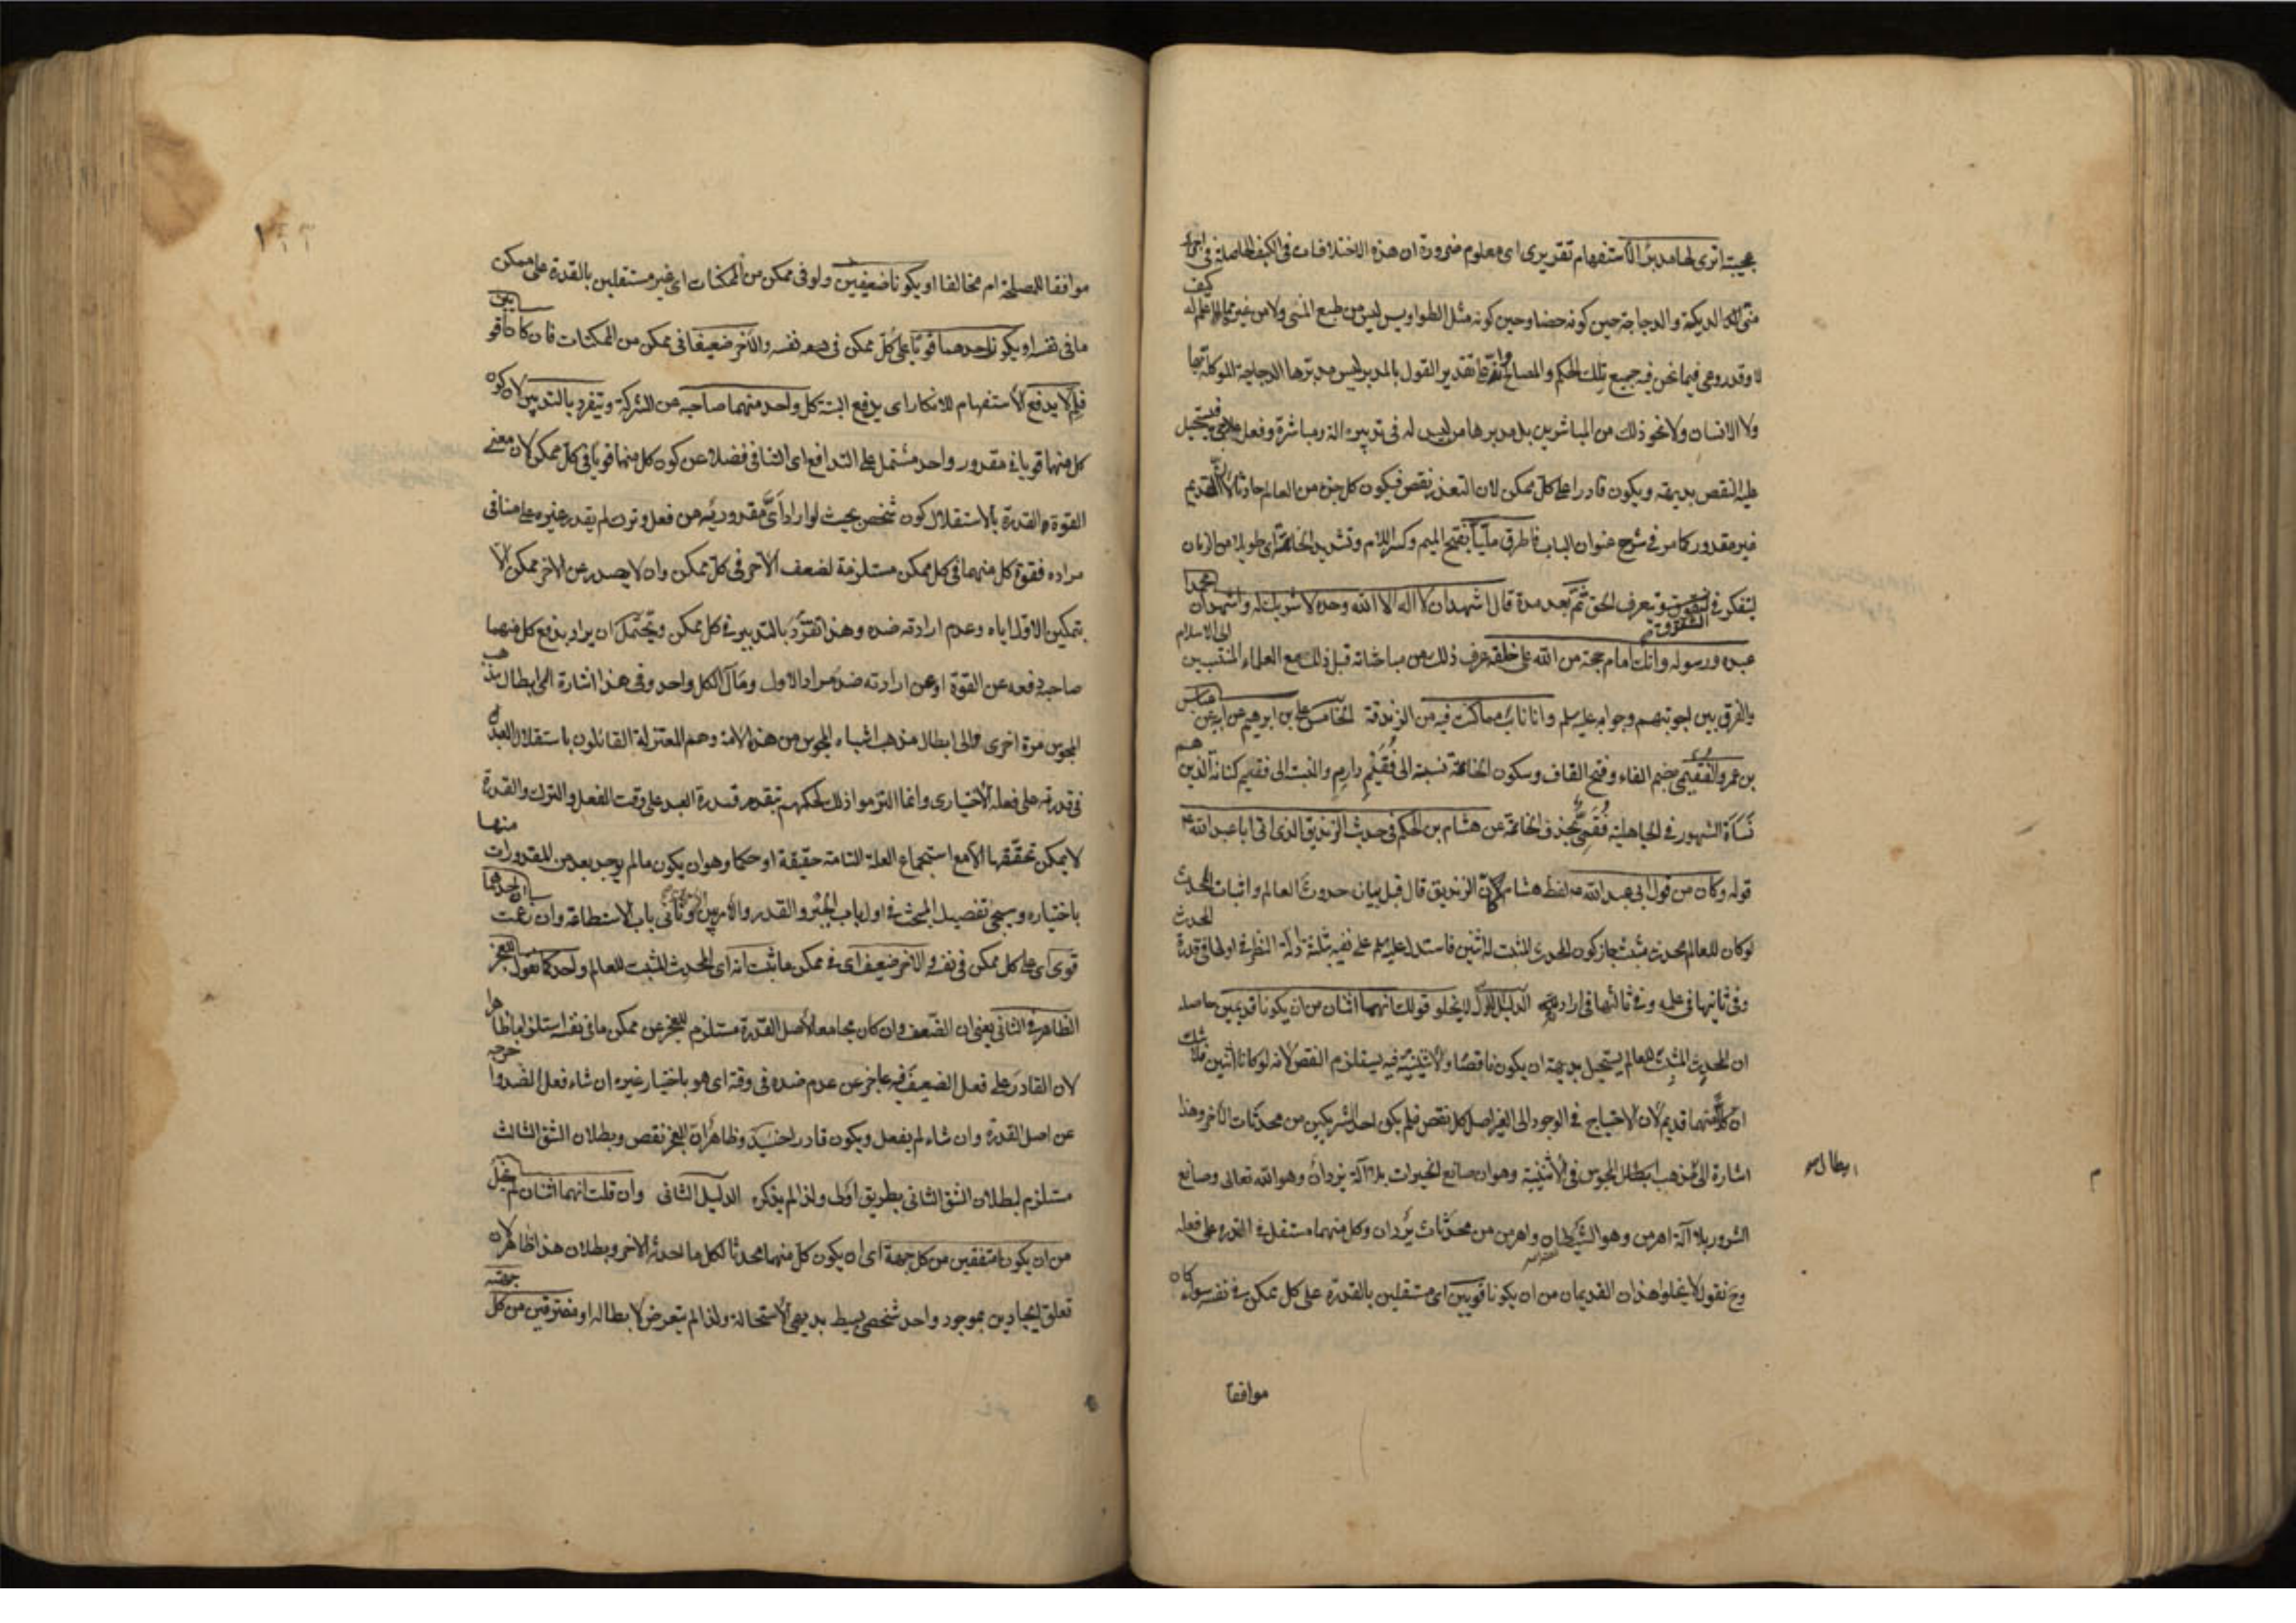 عجيبة اترى لها مدبرا الاستفهام تقديرى اى معلوم ضرورة ان هذه الاختلافات فى الكيف الحاصلة فى اجزاء
الديكة والدجاجة حين كونه حضا وحين كونه مثل الطواويس ليس من طبع المنى ولا من غير مما لا علم له كيف
لا وقد روعى فيما نحن فيه جميع تلك الحكم والمصالح وانه على تقدير القول بالمدبر ليس مدبرها الدجاجة الموكلة بها
ولا الانسان ولا نحو ذلك من المباشرين بل مدبرها من ليس له فى تدبيره آلة ومباشرة وفعل علاجى فيستحيل
عليه النقص بديهة ويكون قادرا على كل ممكن لان التعذر نقص فيكون كل جزء من العالم حادثا لان القديم
غير مقدور كما مر فى شرح عنوان الباب فاطرق مليا بفتح الميم وكسر اللام وتشديد الخاتمة اى طويلا من الزمان
ليتفكر فى ويعرف الحق ثم بعد مدة قال اشهد ان لا اله الا الله وحده لا شريك له واشهد ان محمدا
عبده ورسوله وانك امام حجة من الله على خلقه عرف ذلك من مباحثاته قبل ذلك مع العلماء المنتسبين الى الاسلام
والفرق بين اجوبتهم وجوابه عليه سلم وانا تائب مما كنت فيه من الزندقة الخامس على بن ابرهيم عن ابيه عن عباس
بن عمرو الفقيمى بضم الفاء وفتح القاف وسكون الخاتمة نسبة الى فقيم دارم والنسبة الى فقيم كنانة الذين هم
نسأة الشهور فى الجاهلية فقمى بحذف الخاتمة عن هشام بن الحكم فى حديث الزنديق الذى اتى ابا عبد الله ع
قوله وكان من قول ابى عبد الله ع لفظ هشام كان الزنديق قال قبل بيان حدوث العالم واثبات المحدث
لو كان للعالم محدث مثبت جاز كون المحدث المثبت له اثنين فاستدل عليه سلم على نفيه بثلثة ادلة النظر فى اولها فى قدرة المحدث
وفى ثانيها فى علمه وفى ثالثها فى ارادته الدليل الاول لا يخلو قولك انهما اثنان من ان يكونا قديمين حاصله
ان المحدث المثبت للعالم يستحيل بديهة ان يكون ناقصا والاثنينية فيه يستلزم النقص لانه لو كانا اثنين فلا شك
ان كلا منهما قديم لان الاحتياج فى الوجود الى الغير اصل كل نقص فلم يكن احد الشريكين من محدثات الآخر وهذا
ابطال
اشارة الى مذهب المجوس فى الاثنينية وهو ان صانع الخيرات بلا آلة يزدان وهو الله تعالى وصانع
الشرور بلا آلة اهرمن وهو الشيطان واهرمن من محدثات يزدان وكل منهما مستقل فى القدرة على فعله
وح نقول لا يخلوا هذان القديمان من ان يكونا قويين اى مستقلين بالقدرة على كل ممكن فى نفسه سواء كان
موافقا
موافقا للمصلحة ام مخالفا او يكونا ضعيفين ولو فى ممكن من الممكنات اى غير مستقلين بالقدرة على ممكن
ما فى نفسه او يكون احدهما قويا على كل ممكن فى نفسه والآخر ضعيفا فى ممكن من الممكنات فان كانا قويين
فلم لا يدفع الاستفهام للانكار اى يدفع البتة كل واحد منهما صاحبه عن الشركة ويتفرد بالتدبير لان كون
كل منهما قويا فى مقدور واحد مشتمل على التدافع اى التنافى فضلا عن كون كل منهما قويا فى كل ممكن لان معنى
القوة والقدرة بالاستقلال كون شخص بحيث لو اراد اى مقدوريه من فعل وترك لم يقدر غيره على منافى
مراده فقوة كل منهما فى كل ممكن مستلزمة لضعف الآخر فى كل ممكن وان لا يصدر عن الآخر ممكن الا
بتمكين الاول اياه وعدم ارادته ضده وهذا تفرد بالتدبير فى كل ممكن ويحتمل ان يراد بدفع كل منهما
صاحبه دفعه عن القوة او عن ارادته ضد مراد الاول ومآل الكل واحد وفى هذا اشارة الى ابطال مذهب
المجوس مرة اخرى والى ابطال مذهب اشباه المجوس من هذه الامة وهم المعتزلة القائلون باستقلال العبد
فى قدرته على فعله الاختيارى وانما التزموا ذلك لحكمهم بتقدم قدرة العبد على وقت الفعل والترك والقدرة
لا يمكن تحققها الا مع استجماع العلة التامة حقيقة او حكما وهو ان يكون ما لم يوجد بعد من المقدورات منها
باختياره وسيجئ تفصيل المبحث فى اول باب الجبر والقدر والامر بين الامرين وثانى باب الاستطاعة وان زعمت ان احدهما
قوى اى على كل ممكن فى نفسه والآخر ضعيف اى فى ممكن ما ثبت انه اى المحدث المثبت للعالم واحد كما نقول للعجز
الظاهر فى الثانى يعنى ان الضعف وان كان مجامعا لاصل القدرة مستلزم للعجز عن ممكن ما فى نفسه استلزاما ظاهرا
لان القادر على فعل الضعيف فيه عاجز عن عدم ضده فى وقته اى هو باختيار غيره ان شاء فعل الضد واخرجه
عن اصل القدرة وان شاء لم يفعل ويكون قادرا حينئذ وظاهر ان العجز نقص وبطلان الشق الثالث
مستلزم لبطلان الشق الثانى بطريق اولى ولذا لم يذكره الدليل الثانى وان قلت انهما اثنان لم يخل
من ان يكونا متفقين من كل جهة اى ان يكون كل منهما محدثا لكل ما احدثه الآخر وبطلان هذا ظاهر لان
تعلق ايجادين بموجود واحد شخصى بسيط بديهى الاستحالة ولذا لم يتعرض لابطاله او مفترقين من كل جهة